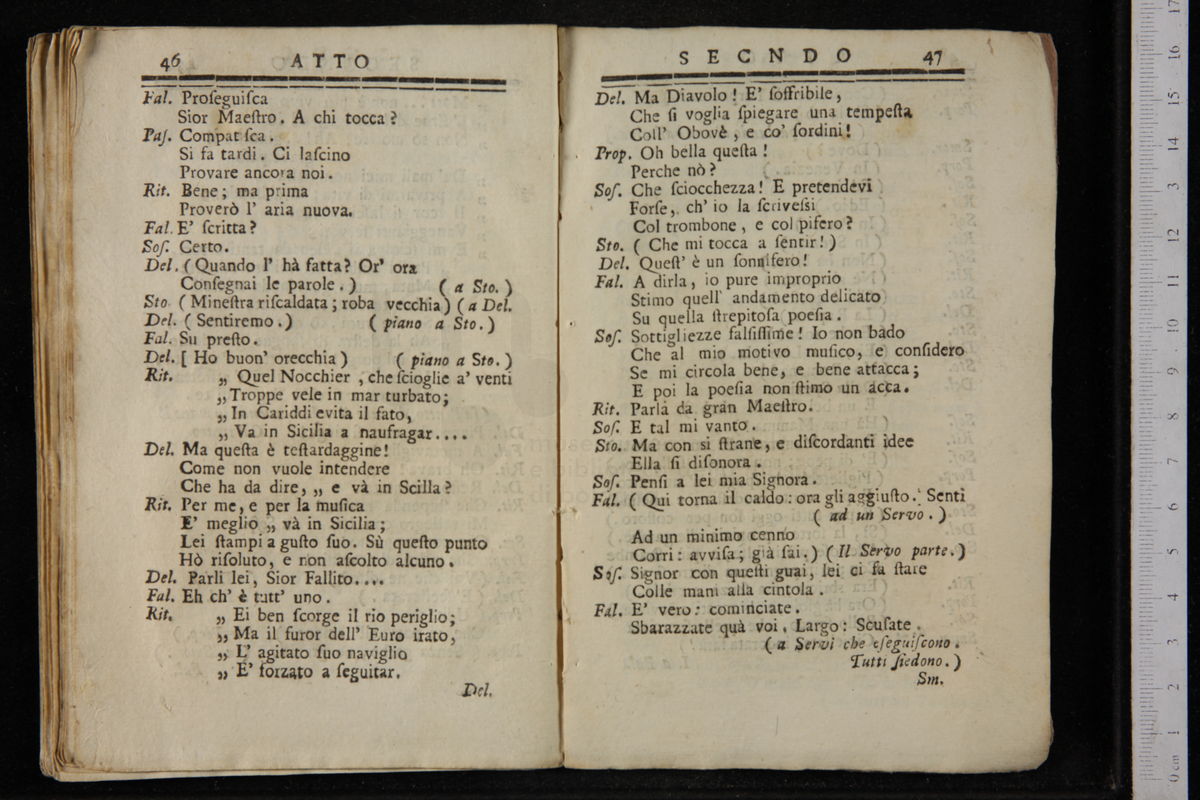 46 ATTO
Fal. Proſeguiſca
Sior Maeſtro. A chi tocca?
Paſ. Compatiſca.
Si fa tardi. Ci laſcino
Provare ancora noi.
Rit. Bene; ma prima
Proverò l' aria nuova.
Fal. E' ſcritta?
Soſ. Certo.
Del. (Quando l' hà fatta? Or' ora
Conſegnai le parole.) (a Sto.)
Sto (Mineſtra riſcaldata; roba vecchia) (a Del.
Del. (Sentiremo.) (piano a Sto.)
Fal. Su preſto.
Del. [Ho buon' orecchia) (piano a Sto.)
Rit. „ Quel Nocchier, che ſcioglie a' venti
„ Troppe vele in mar turbato;
„ In Cariddi evita il fato,
„ Va in Sicilia a naufragar....
Del. Ma queſta è teſtardaggine!
Come non vuole intendere
Che ha da dire, „ e và in Scilla?
Rit. Per me, e per la muſica
E' meglio „ và in Sicilia;
Lei ſtampi a guſto ſuo. Sù queſto punto
Hò riſoluto, e non aſcolto alcuno.
Del. Parli lei, Sior Fallito....
Fal. Eh ch' è tutt' uno.
Rit. „ Ei ben ſcorge il rio periglio;
„ Ma il furor dell' Euro irato,
„ L' agitato ſuo naviglio
„ E' forzato a ſeguitar.
Del.
SECNDO 47
Del. Ma Diavolo! E' ſoffribile,
Che ſi voglia ſpiegare una tempeſta
Coll' Obovè, e co' ſordini!
Prop. Oh bella queſta!
Perche nò?
Soſ. Che ſciocchezza! E pretendevi
Forſe, ch' io la ſcriveſsi
Col trombone, e col pifero?
Sto. (Che mi tocca a ſentir!)
Del. Queſt' è un ſonnifero!
Fal. A dirla, io pure improprio
Stimo quell' andamento delicato
Su quella ſtrepitoſa poeſia.
Soſ. Sottigliezze falſiſſime! Io non bado
Che al mio motivo muſico, e conſidero
Se mi circola bene, e bene attacca;
E poi la poeſia non ſtimo un acca.
Rit. Parla da gran Maeſtro.
Soſ. E tal mi vanto.
Sto. Ma con si ſtrane, e diſcordanti idee
Ella ſi diſonora.
Soſ. Penſi a lei mia Signora.
Fal. (Qui torna il caldo: ora gli aggiuſto. Senti
(ad un Servo.)
Ad un minimo cenno
Corri: avviſa; già ſai.) (Il Servo parte.)
Soſ. Signor con queſti guai, lei ci fa ſtare
Colle mani alla cintola.
Fal. E' vero: cominciate.
Sbarazzate quà voi. Largo: Scuſate.
(a Servi che eſeguiſcono.
Tutti ſiedono.)
Sm.